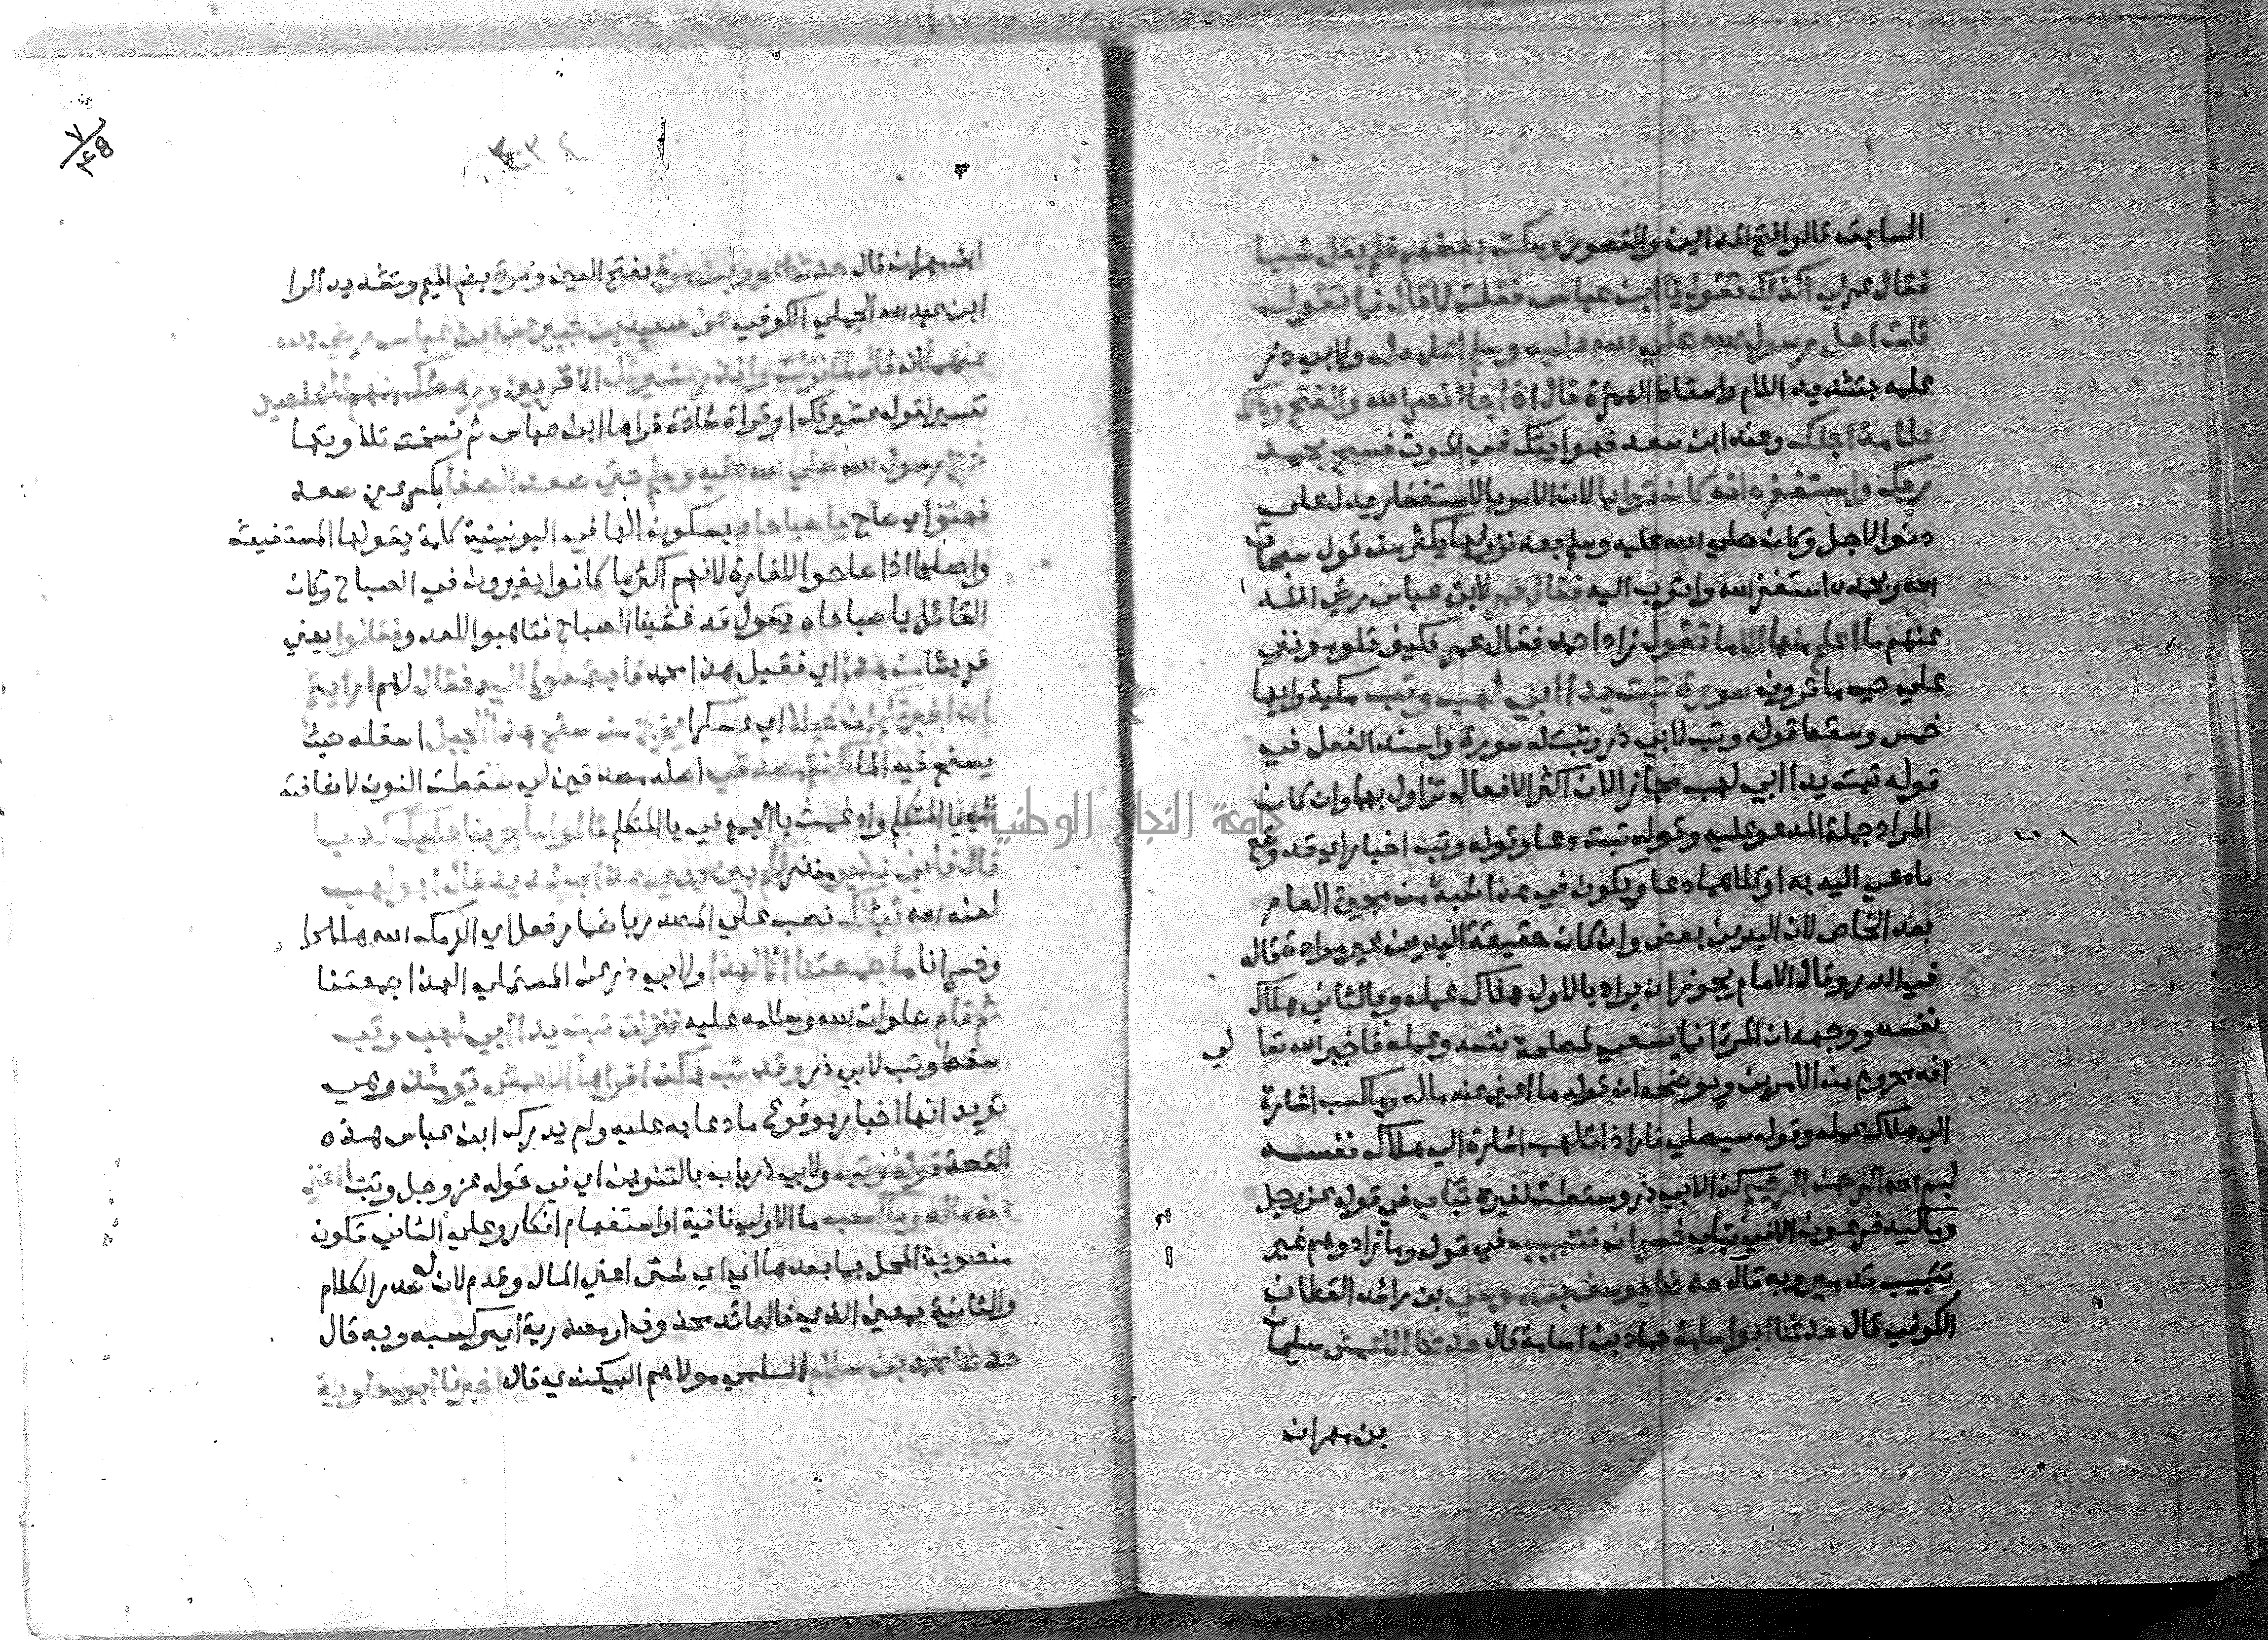 السابقة قالوا فتح المداين والقصور وسكت بعضهم فلم يقل شييا
فقال عمر لي اكذاك تقول يا ابن عباس فقلت لا قال فما تقول
قلت اجل رسول الله صلي الله عليه وسلم اعلمه له ولابي ذر
علمه بتشديد اللام واسقاط الهمزة قال اذا جاء نصر الله والفتح وذلك
علامة اجلك وعند ابن سعد فهو ايتك في الموت فسبح بحمد
ربك واستغفره انه كان توابا لان الامر بالاستغفار يدل علي
دنو الاجل وكان صلي الله عليه وسلم بعد نزولها يكثر من قول سبحان
الله وبحمده استغفر الله واتوب اليه فقال عمر لابن عباس رضي الله
عنهم ما اعلم منها الا ما تقول زاد احمد فقال عمر فكيف تلومونني
علي حب ما ترون سورة تبت يدا ابي لهب وتب مكية وايها
خمس وسقط قوله وتب لابي ذر وثبت له سورة واسند الفعل في
قوله تبت يدا ابي لهب مجازا لان اكثر الافعال تزاول بهما وان كان
المراد جملة المدعو عليه وقوله تبت دعا وقوله وتب اخبار اي قد وقع
ما دعي اليه به او كلاهما دعا ويكون في هذا شبه من مجي العام
بعد الخاص لان اليدين بعض وان كان حقيقة اليدين غير مرادة قاله
في الدر وقال الامام يجوز ان يراد بالاول هلاك عمله وبالثاني هلاك
نفسه ووجهه ان المرء انما يسعي لمصلحة نفسه وعمله فاخبر الله تعا لي
انه محروم من الامرين ويوضحه ان قوله ما اغني عنه ماله وما كسب اشارة
الي هلاك عمله وقوله سيصلي نارا ذات لهب اشارة الي هلاك نفسه
بسم الله الرحمن الرحيم كذا لابي ذر وسقطت لغيره تباب في قوله عز وجل
وما كيد فرعون الا في تباب خسران تتبيب في قوله وما زادوهم غير
تتبيب تدمير وبه قال حدثنا يوسف بن موسي بن راشد القطان
الكوفي قال حدثنا ابو اسامة حماد بن اسامة قال حدثنا الاعمش سليمان
بن مهران
ابن مهران قال حدثنا عمرو بن مرة بفتح العين ومرة بضم الميم وتشديد الرا
ابن عبد الله الجملي الكوفي عن سعيد بن جبير عن ابن عباس رضي الله
عنهما انه قال لما نزلت وانذر عشيرتك الاقربين ورهطك منهم المخلصين
تفسير لقوله عشيرتك او قراة شاذة قراها ابن عباس ثم نسخت تلاوتها
خرج رسول الله صلي الله عليه وسلم حتي صعد الصفا بكسر عين صعد
فهتف اي صاح يا صباحاه بسكون الها في اليونينية كلمة يقولها المستغيث
واصلها اذا صاحوا للغارة لانهم اكثر ما كانوا يغيرون في الصباح وكان
القائل يا صباحاه يقول قد غشينا الصباح فتاهبوا للعدو فقالوا يعني
قريشا من هذا اي فقيل هذا محمد فاجتمعوا اليه فقال لهم ارايتم
ان اخبرتكم ان خيلا اي عسكرا تخرج من سفح هذا الجبل اسفله حيث
يسفح فيه الما اكنتم مصدقي اصله مصدقين لي سقطت النون لاضافته
الي يا المتكلم وادغمت يا الجمع في يا المتكلم قالوا ما جربنا عليك كذبا
قال فاني نذير لكم بين يدي عذاب شديد قال ابو لهب
لعنه الله تبا لك نصب علي المصدر باضمار فعل اي الزمك الله هلاكا
وخسرانا ما جمعتنا الا لهذا ولابي ذر عن المستملي الهذا جمعتنا
ثم قام صلوات الله وسلامه عليه فنزلت تبت يدا ابي لهب وتب
سقط وتب لابي ذر وقد تب هكذا قراها الاعمش يومئذ وهي
تريد انها اخبار بوقوع ما دعا به عليه ولم يدرك ابن عباس هذه
القصة قوله وتب ولابي ذر باب بالتنوين اي في قوله عز وجل وتب ما اغني
عنه ماله وما كسب ما الاولي نافية او استفهام انكار وعلي الثاني تكون
منصوبة المحل بما بعدها اي اي شي اغني المال وقدم لان له صدر الكلام
والثانية بمعني الذي فالعائد محذوف او مصدرية اي كسبه وبه قال
حدثنا محمد بن سلام السلمي مولاهم البيكندي قال اخبرنا ابو معاوية
جامعة النجاح الوطنية